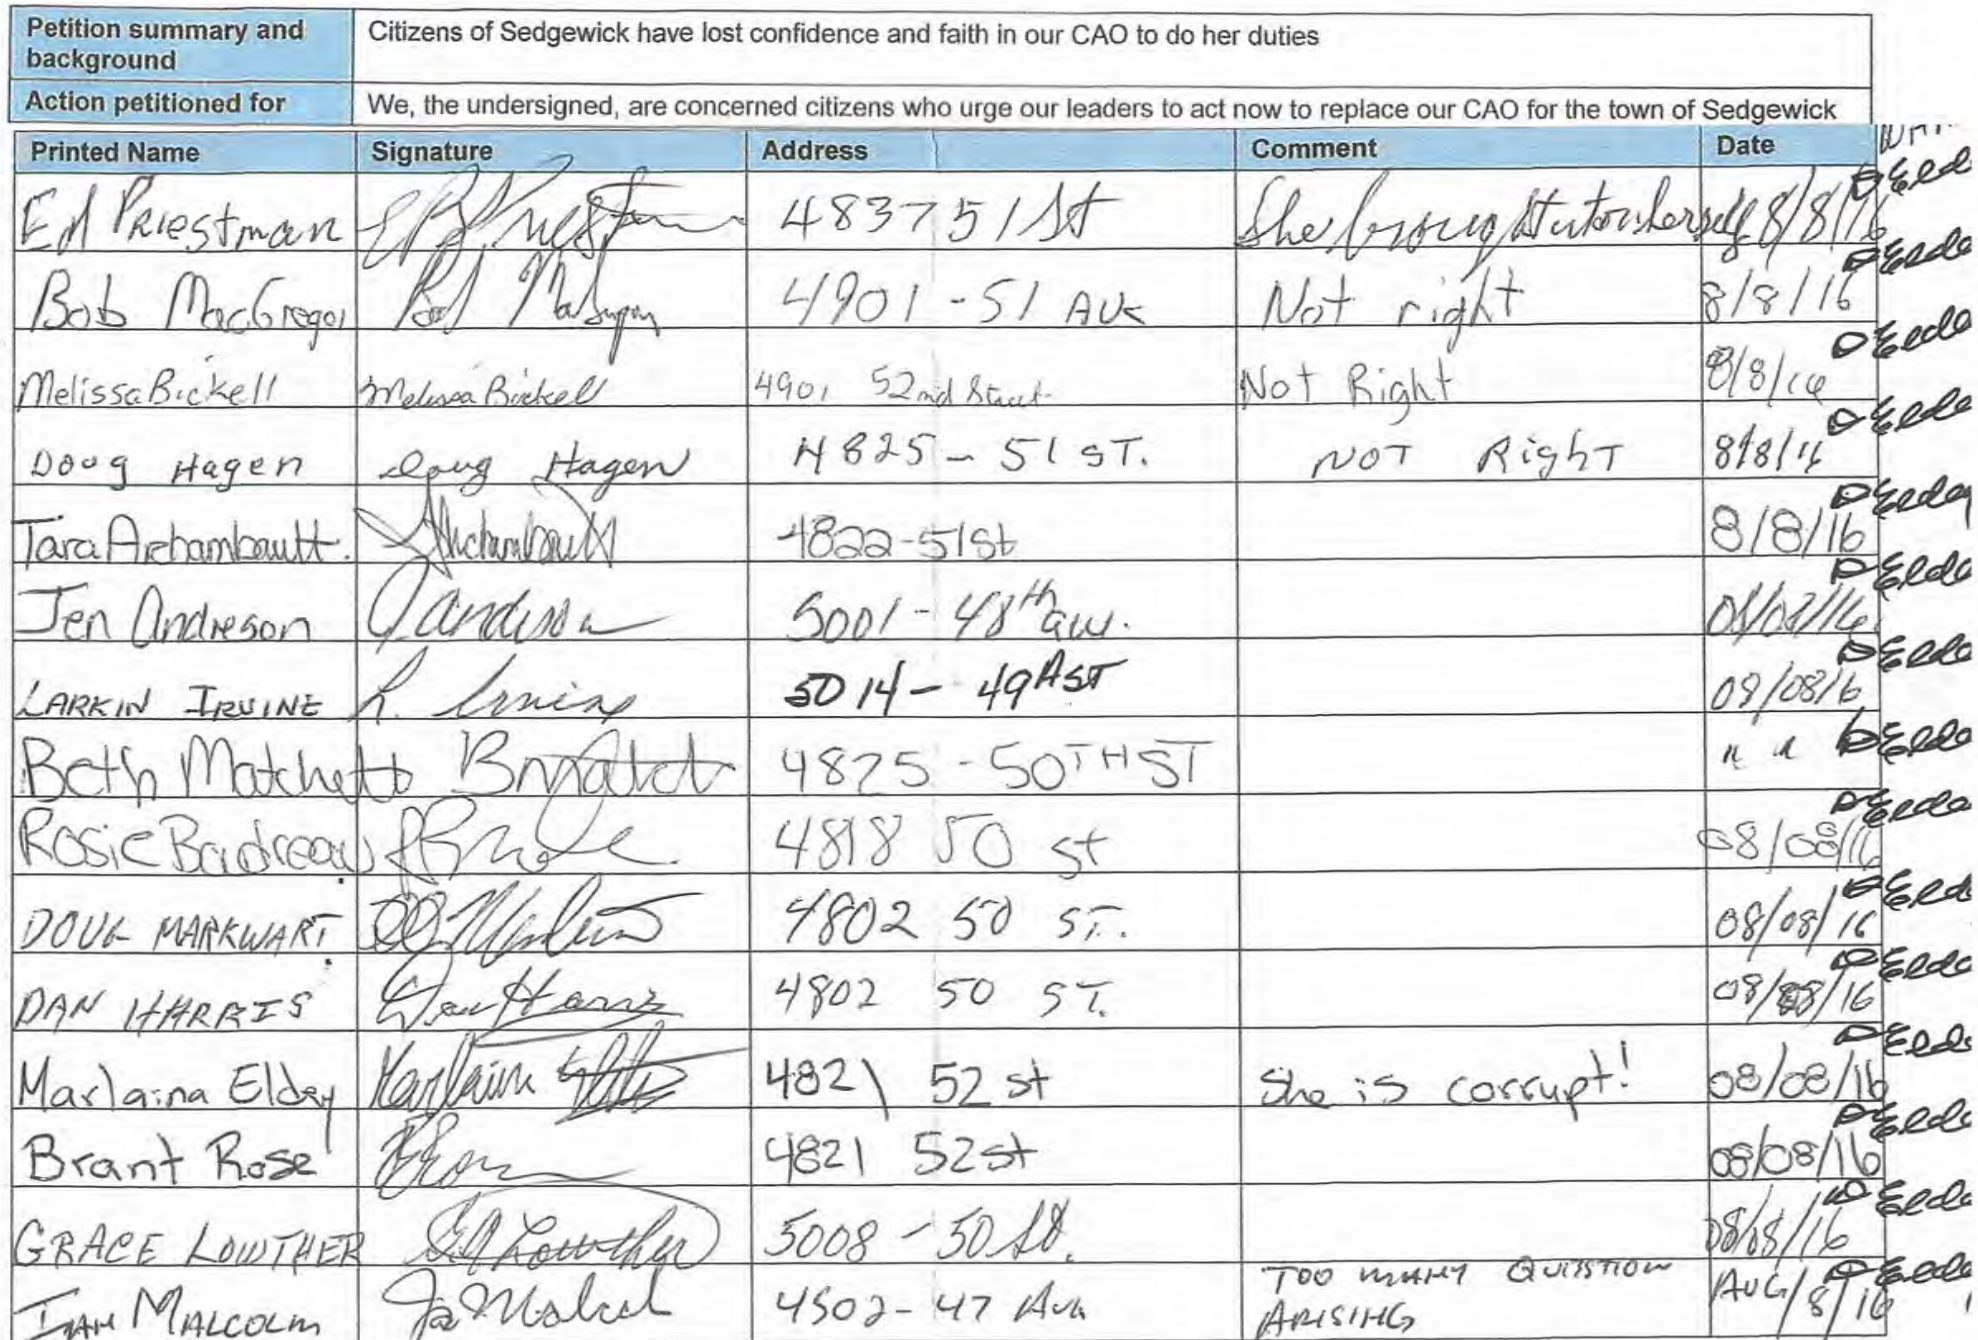 Petition summary and background
Citizens of Sedgewick have lost confidence and faith in our CAO to do her duties
Action petitioned for
We, the undersigned, are concerned citizens who urge our leaders to act now to replace our CAO for the town of Sedgewick
Printed Name Signature Address Comment Date
Ed Priestman 4837 51 St She brought it onto herself 8/8/16
Bob MacGregor Bob MacGregor 4901 - 51 Ave Not right 8/8/16
Melissa Bickell Melissa Bickell 4901 52nd Street Not Right 8/8/16
Doug Hagen Doug Hagen 4825 - 51 ST. NOT Right 8/8/16
Tara Archambault. Archambault 4822-51St 8/8/16
Jen Andreson 5001 - 48th ave.
LARKIN IRVINE L. Irvine 5014 - 49A ST 09/08/16
Beth Matchett B Matchett 4825 - 50TH ST " "
Rosie Badreau 4818 50 st 08/08/16
DOUG MARKWART 4802 50 ST. 08/08/16
DAN HARRIS Dan Harris 4802 50 ST. 08/08/16
Marlaina Elday Marlaina 4821 52 st She is corrupt! 08/08/16
Brant Rose 4821 52st 08/08/16
GRACE LOWTHER G Lowther 5008 - 50 St. 08/08/16
IAN MALCOLM Ian Malcolm 4502 - 47 Ave TOO MANY QUISTION ARISING AUG/8/16